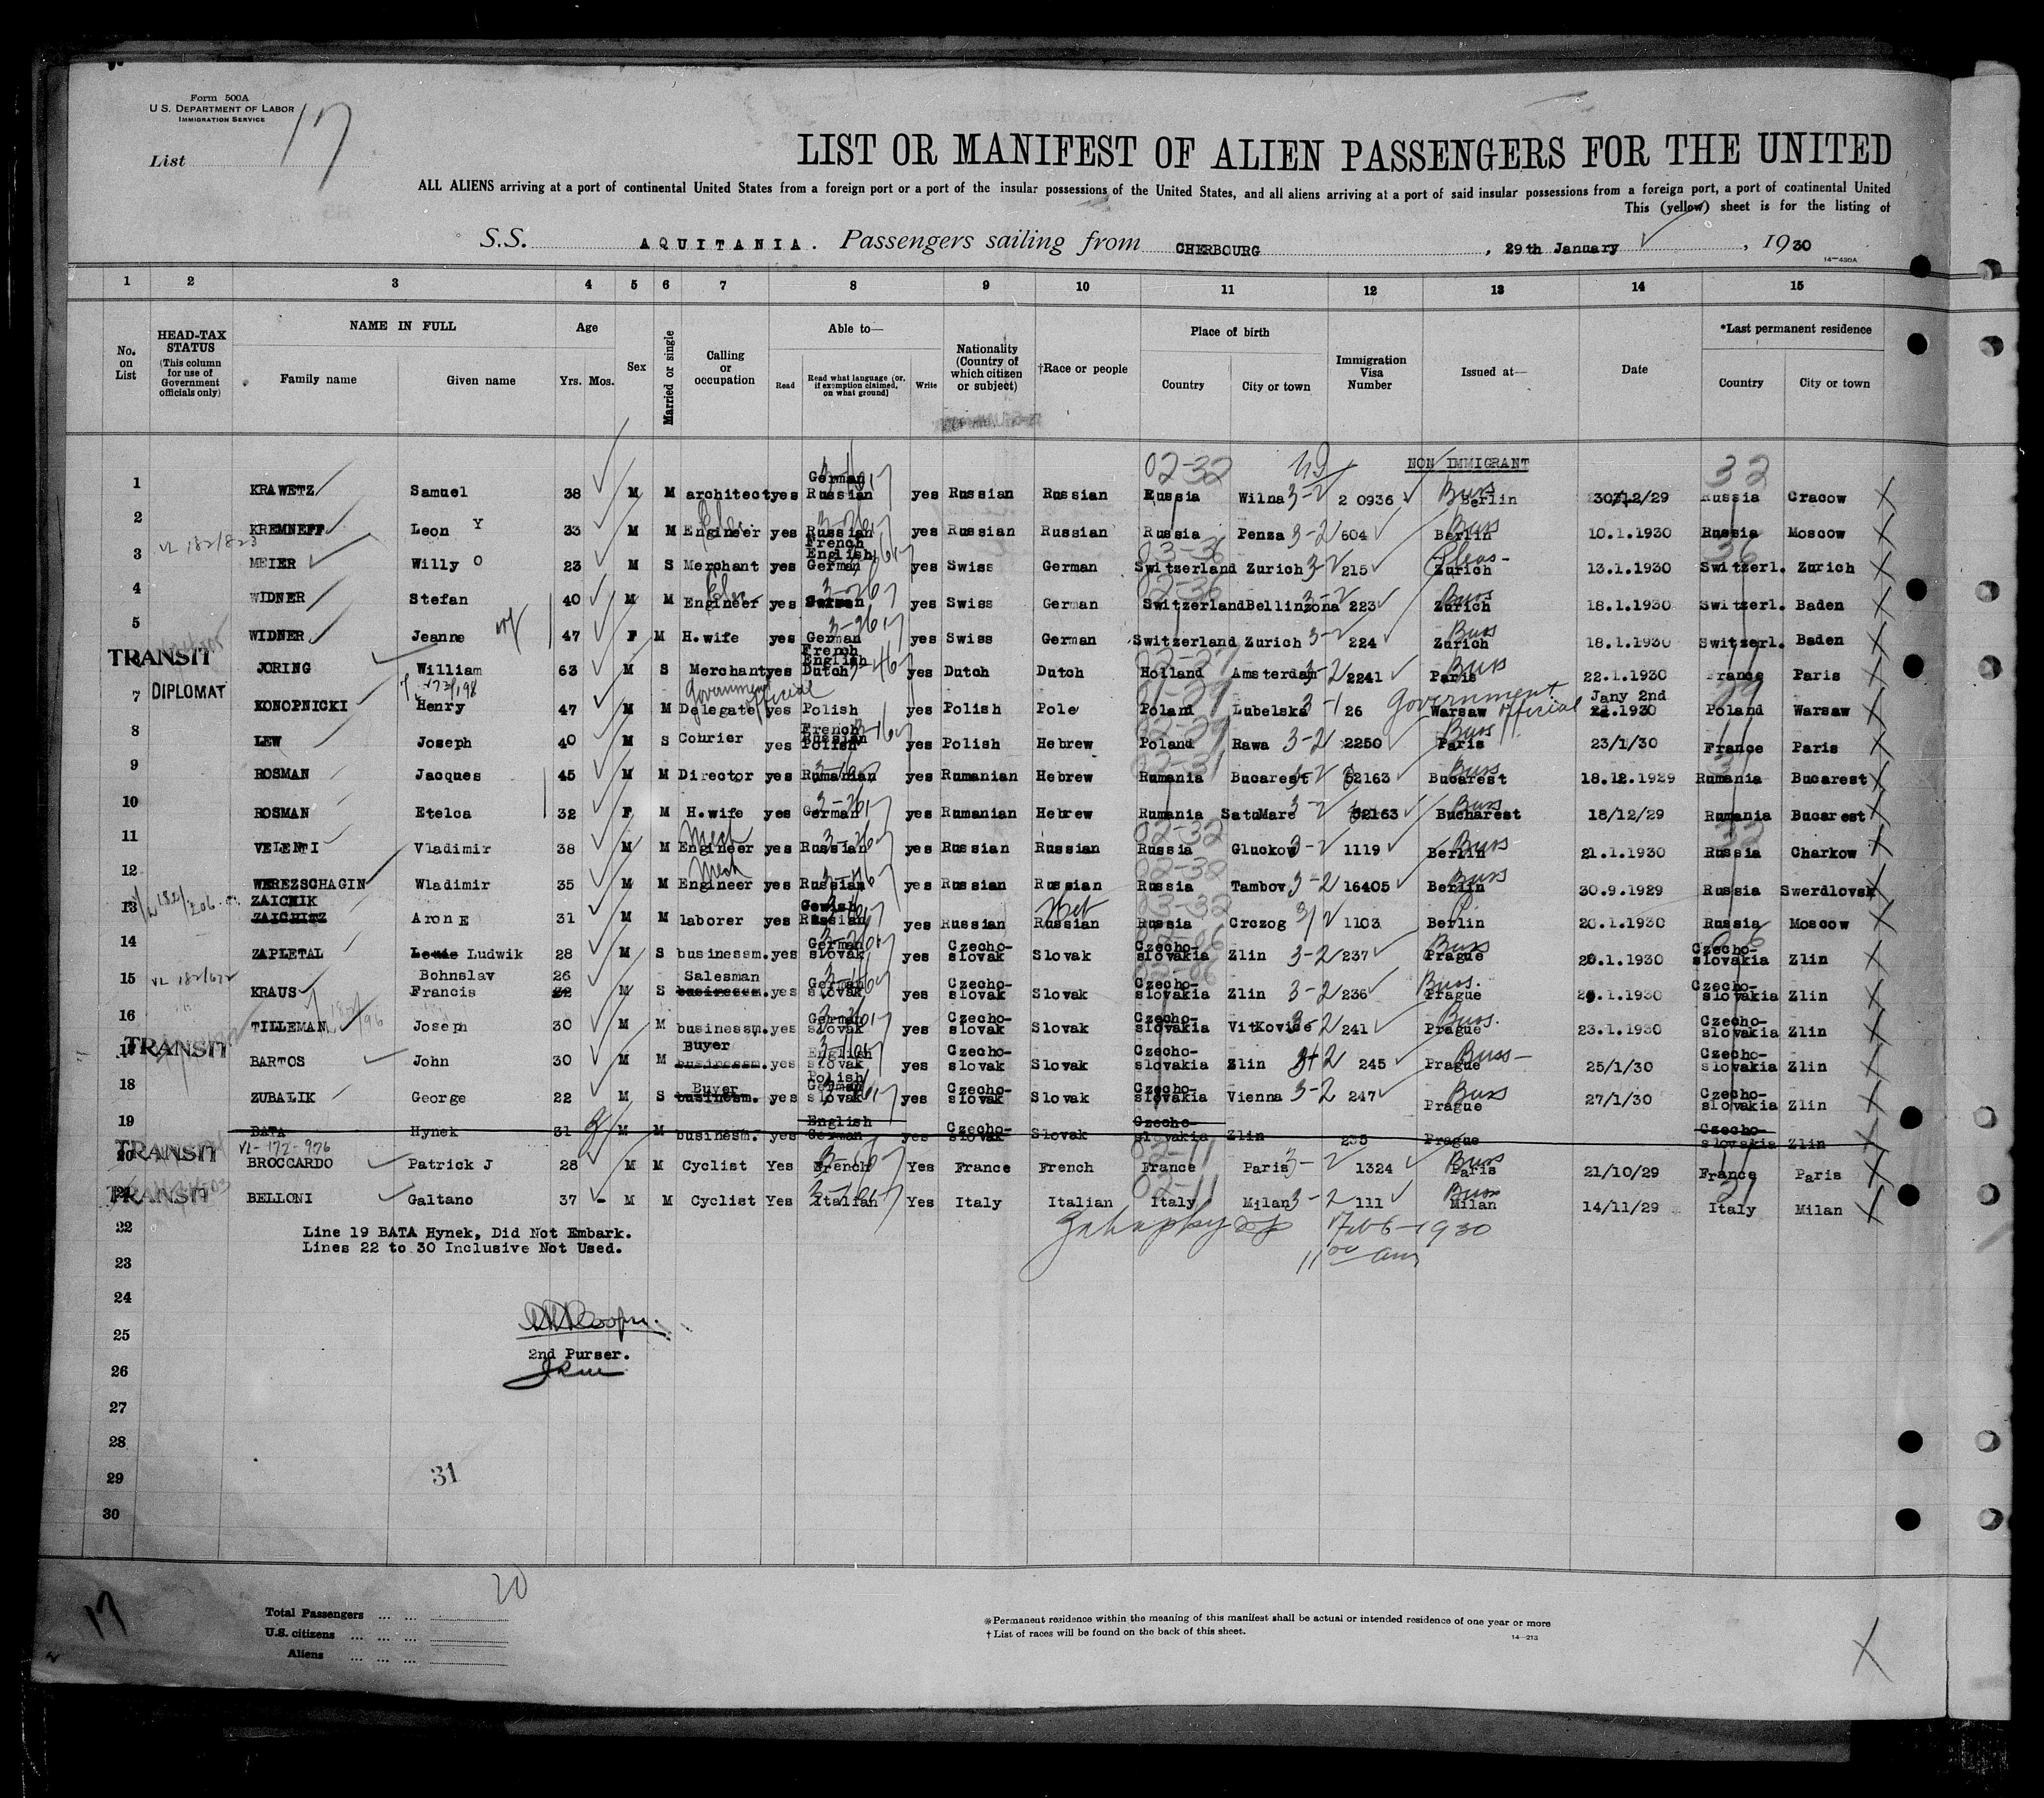 Form 500A
U S. DEPARTMENT OF LABOR
IMMIGRATION SERVICE
List 17
LIST OR MANIFEST OF ALIEN PASSENGERS FOR THE UNITED
ALL ALIENS arriving at a port of continental United States from a foreign port or a port of the insular possessions of the United States, and all aliens arriving at a port of said insular possessions from a foreign port, a port of continental United
This (yellow) sheet is for the listing of
S.S. AQUITANIA. Passengers sailing from CHERBOURG, 29th January, 1930
14—430A
1 2 3 4 5 6 7 8 9 10 11 12 13 14 15
No. on List
HEAD-TAX STATUS (This column for use of Government officials only)
NAME IN FULL
Family name Given name
Age
Yrs. Mos.
Sex
Married or single
Calling or occupation
Able to—
Read
Read what language (or, if exemption claimed, on what ground)
Write
Nationality (Country of which citizen or subject)
†Race or people
Place of birth
Country City or town
Immigration Visa Number
Issued at—
Date
*Last permanent residence
Country City or town
NON IMMIGRANT
1 KRAWETZ Samuel 38 M M architect yes German Russian yes Russian Russian Russia Wilna 3-2 2 0936 Buss Berlin 30/12/29 Russia Cracow X
2 KREMNEFF Leon Y 33 M M Elec. Engineer yes Russian yes Russian Russian Russia Penza 3-2 604 Buss Berlin 10.1.1930 Russia Moscow X
3 MEIER Willy O 23 M S Merchant yes French English German yes Swiss German Switzerland Zurich 3-2 215 Pleas- Zurich 13.1.1930 Switzerl. Zurich X
4 WIDNER Stefan 40 M M Elec Engineer yes German yes Swiss German Switzerland Bellinzona 3-2 223 Buss Zurich 18.1.1930 Switzerl. Baden X
5 WIDNER Jeanne wf 47 F M H.wife yes German yes Swiss German Switzerland Zurich 3-2 224 Buss Zurich 18.1.1930 Switzerl. Baden X
TRANSIT JORING William 63 M S Merchant yes French English Dutch yes Dutch Dutch Holland Amsterdam 3-2 2241 Buss Paris 22.1.1930 France Paris X
7 DIPLOMAT KONOPNICKI Henry 47 M M Government official Delegate yes Polish yes Polish Pole Poland Lubelska 3-1 26 Government official Warsaw Jany 2nd 1930 Poland Warsaw X
8 LEW Joseph 40 M S Courier yes French Russian Polish yes Polish Hebrew Poland Rawa 3-2 2250 Buss Paris 23/1/30 France Paris X
9 ROSMAN Jacques 45 M M Director yes Rumanian yes Rumanian Hebrew Rumania Bucarest 3-2 62163 Buss Bucarest 18.12.1929 Rumania Bucarest X
10 ROSMAN Etelca 32 F M H.wife yes German yes Rumanian Hebrew Rumania SatuMare 3-2 62163 Buss Bucharest 18/12/29 Rumania Bucarest X
11 VELENTI Vladimir 38 M M Mech Engineer yes Russian yes Russian Russian Russia Gluckow 3-2 1119 Buss Berlin 21.1.1930 Russia Charkow X
12 WEREZSCHAGIN Wladimir 35 M M Mech Engineer yes Russian yes Russian Russian Russia Tambov 3-2 16405 Buss Berlin 30.9.1929 Russia Swerdlovsk X
13 ZAICNIK ZAICHITZ Aron E 31 M M laborer yes Russian yes Russian Russian Russia Crozog 1103 Berlin 20.1.1930 Russia Moscow X
14 ZAPLETAL Louis Ludwik 28 M S businessm. yes German slovak yes Czecho-slovak Slovak Czecho-slovakia Zlin 3-2 237 Buss Prague 20.1.1930 Czecho-slovakia Zlin X
15 KRAUS Bohnslav Francis 26 M S Salesman businessm. yes German slovak yes Czecho-slovak Slovak Czecho-slovakia Zlin 3-2 236 Buss. Prague 20.1.1930 Czecho-slovakia Zlin X
16 TILLEMAN Joseph 30 M M businessm. yes German slovak yes Czecho-slovak Slovak Czecho-slovakia Vitkovice 3-2 241 Buss. Prague 23.1.1930 Czecho-slovakia Zlin X
17 TRANSIT BARTOS John 30 M M Buyer businessm. yes English slovak yes Czecho-slovak Slovak Czecho-slovakia Zlin 3-2 245 Buss— Prague 25/1/30 Czecho-slovakia Zlin X
18 ZUBALIK George 22 M S Buyer businesm. yes Polish German slovak yes Czecho-slovak Slovak Czecho-slovakia Vienna 3-2 247 Buss Prague 27/1/30 Czecho-slovakia Zlin X
19 BATA Hynek 31 M M businesm. yes English German yes Czecho-slovak Slovak Czecho-slovakia Zlin 235 Prague Czecho-slovakia Zlin
20 TRANSIT VL-172-976 BROCCARDO Patrick J 28 M M Cyclist Yes French Yes France French France Paris 3-2 1324 Buss Paris 21/10/29 France Paris X
21 TRANSIT BELLONI Galtano 37 - M M Cyclist Yes Italian Yes Italy Italian Italy Milan 3-2 111 Buss Milan 14/11/29 Italy Milan X
22 Line 19 BATA Hynek, Did Not Embark.
Lines 22 to 30 Inclusive Not Used.
Feb 6-1930
11 00 am
23
24
25
2nd Purser.
26
27
28
29
31
30
20
17
Total Passengers ... ...
U.S. citizens ... ... ...
Aliens ... ... ...
*Permanent residence within the meaning of this manifest shall be actual or intended residence of one year or more
† List of races will be found on the back of this sheet.
14—213
X